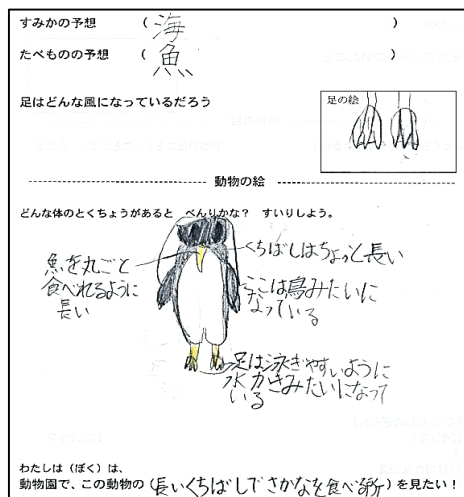 すみかの予想　（ 海 ）
たべものの予想　（ 魚 ）
足はどんな風になっているだろう
足の絵
動物の絵
どんな体のとくちょうがあると　べんりかな？　すいりしよう。
魚を丸ごと
食べれるように
長い
くちばしはちょっと長い
ここは鳥みたいに
なっている
足は泳ぎやすいように
水かきみたいになって
いる
わたしは（ぼく）は、
動物園で、この動物の（長いくちばしでさかなを食べる所）を見たい！